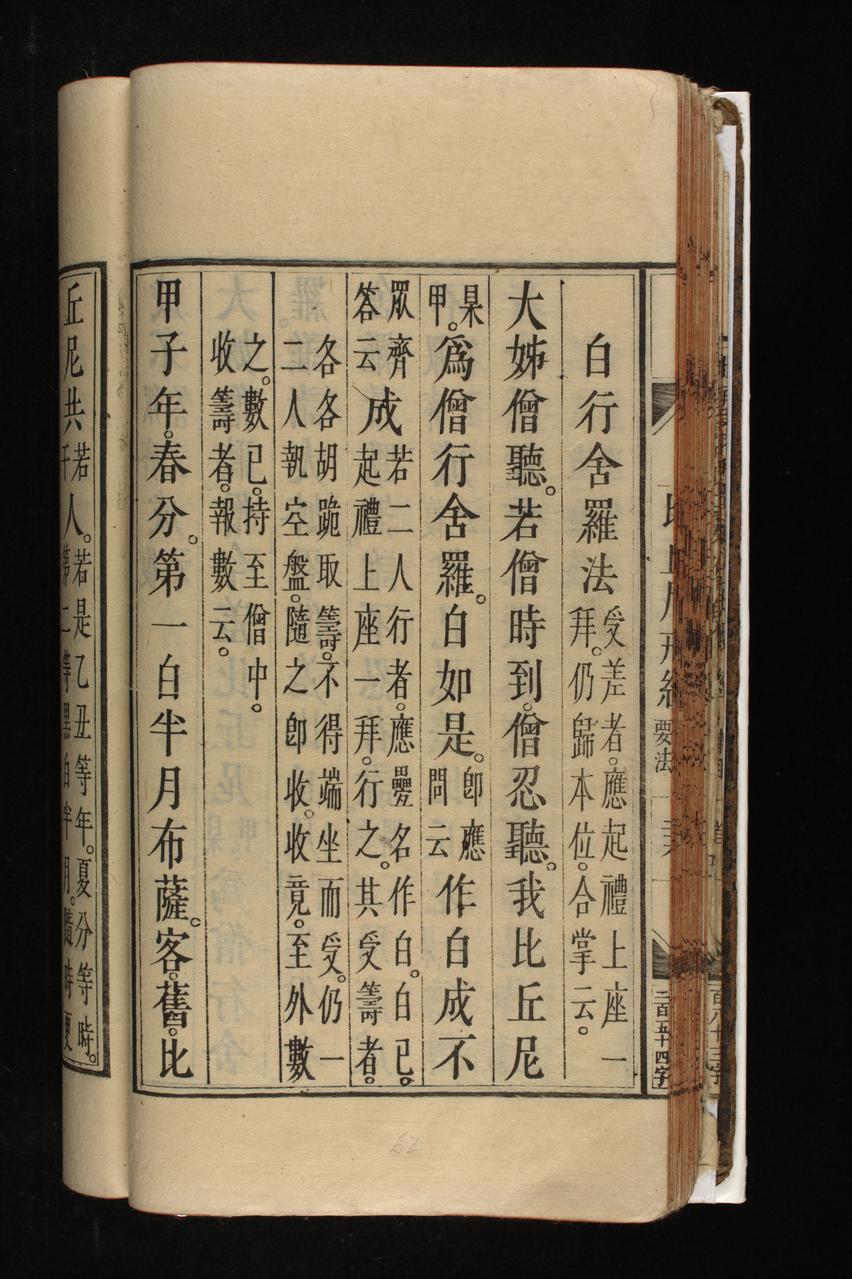 白行舍羅法
受差者。應起禮上座一
拜。仍歸本位。合掌云。
大姊僧聽。若僧時到。僧忍聽。我比丘尼
杲
甲。
爲僧行舍羅。白如是。
即應
問云
作白成不
眾齊
答云
成
若二人行者。應疊名作白。白已。
起禮上座一拜。行之。其受籌者。
各各胡跪取籌。不得端坐而受。仍一
二人執空盤。隨之即收。收竟。至外數
之。數已。持至僧中。
收籌者。報數云。
甲子年。春分。第一白半月布薩。客。舊。比
丘尼共
若
干
人。
若是乙丑等年。夏分等時。
第二等黑白半月。隨時
要法
二百五十四字